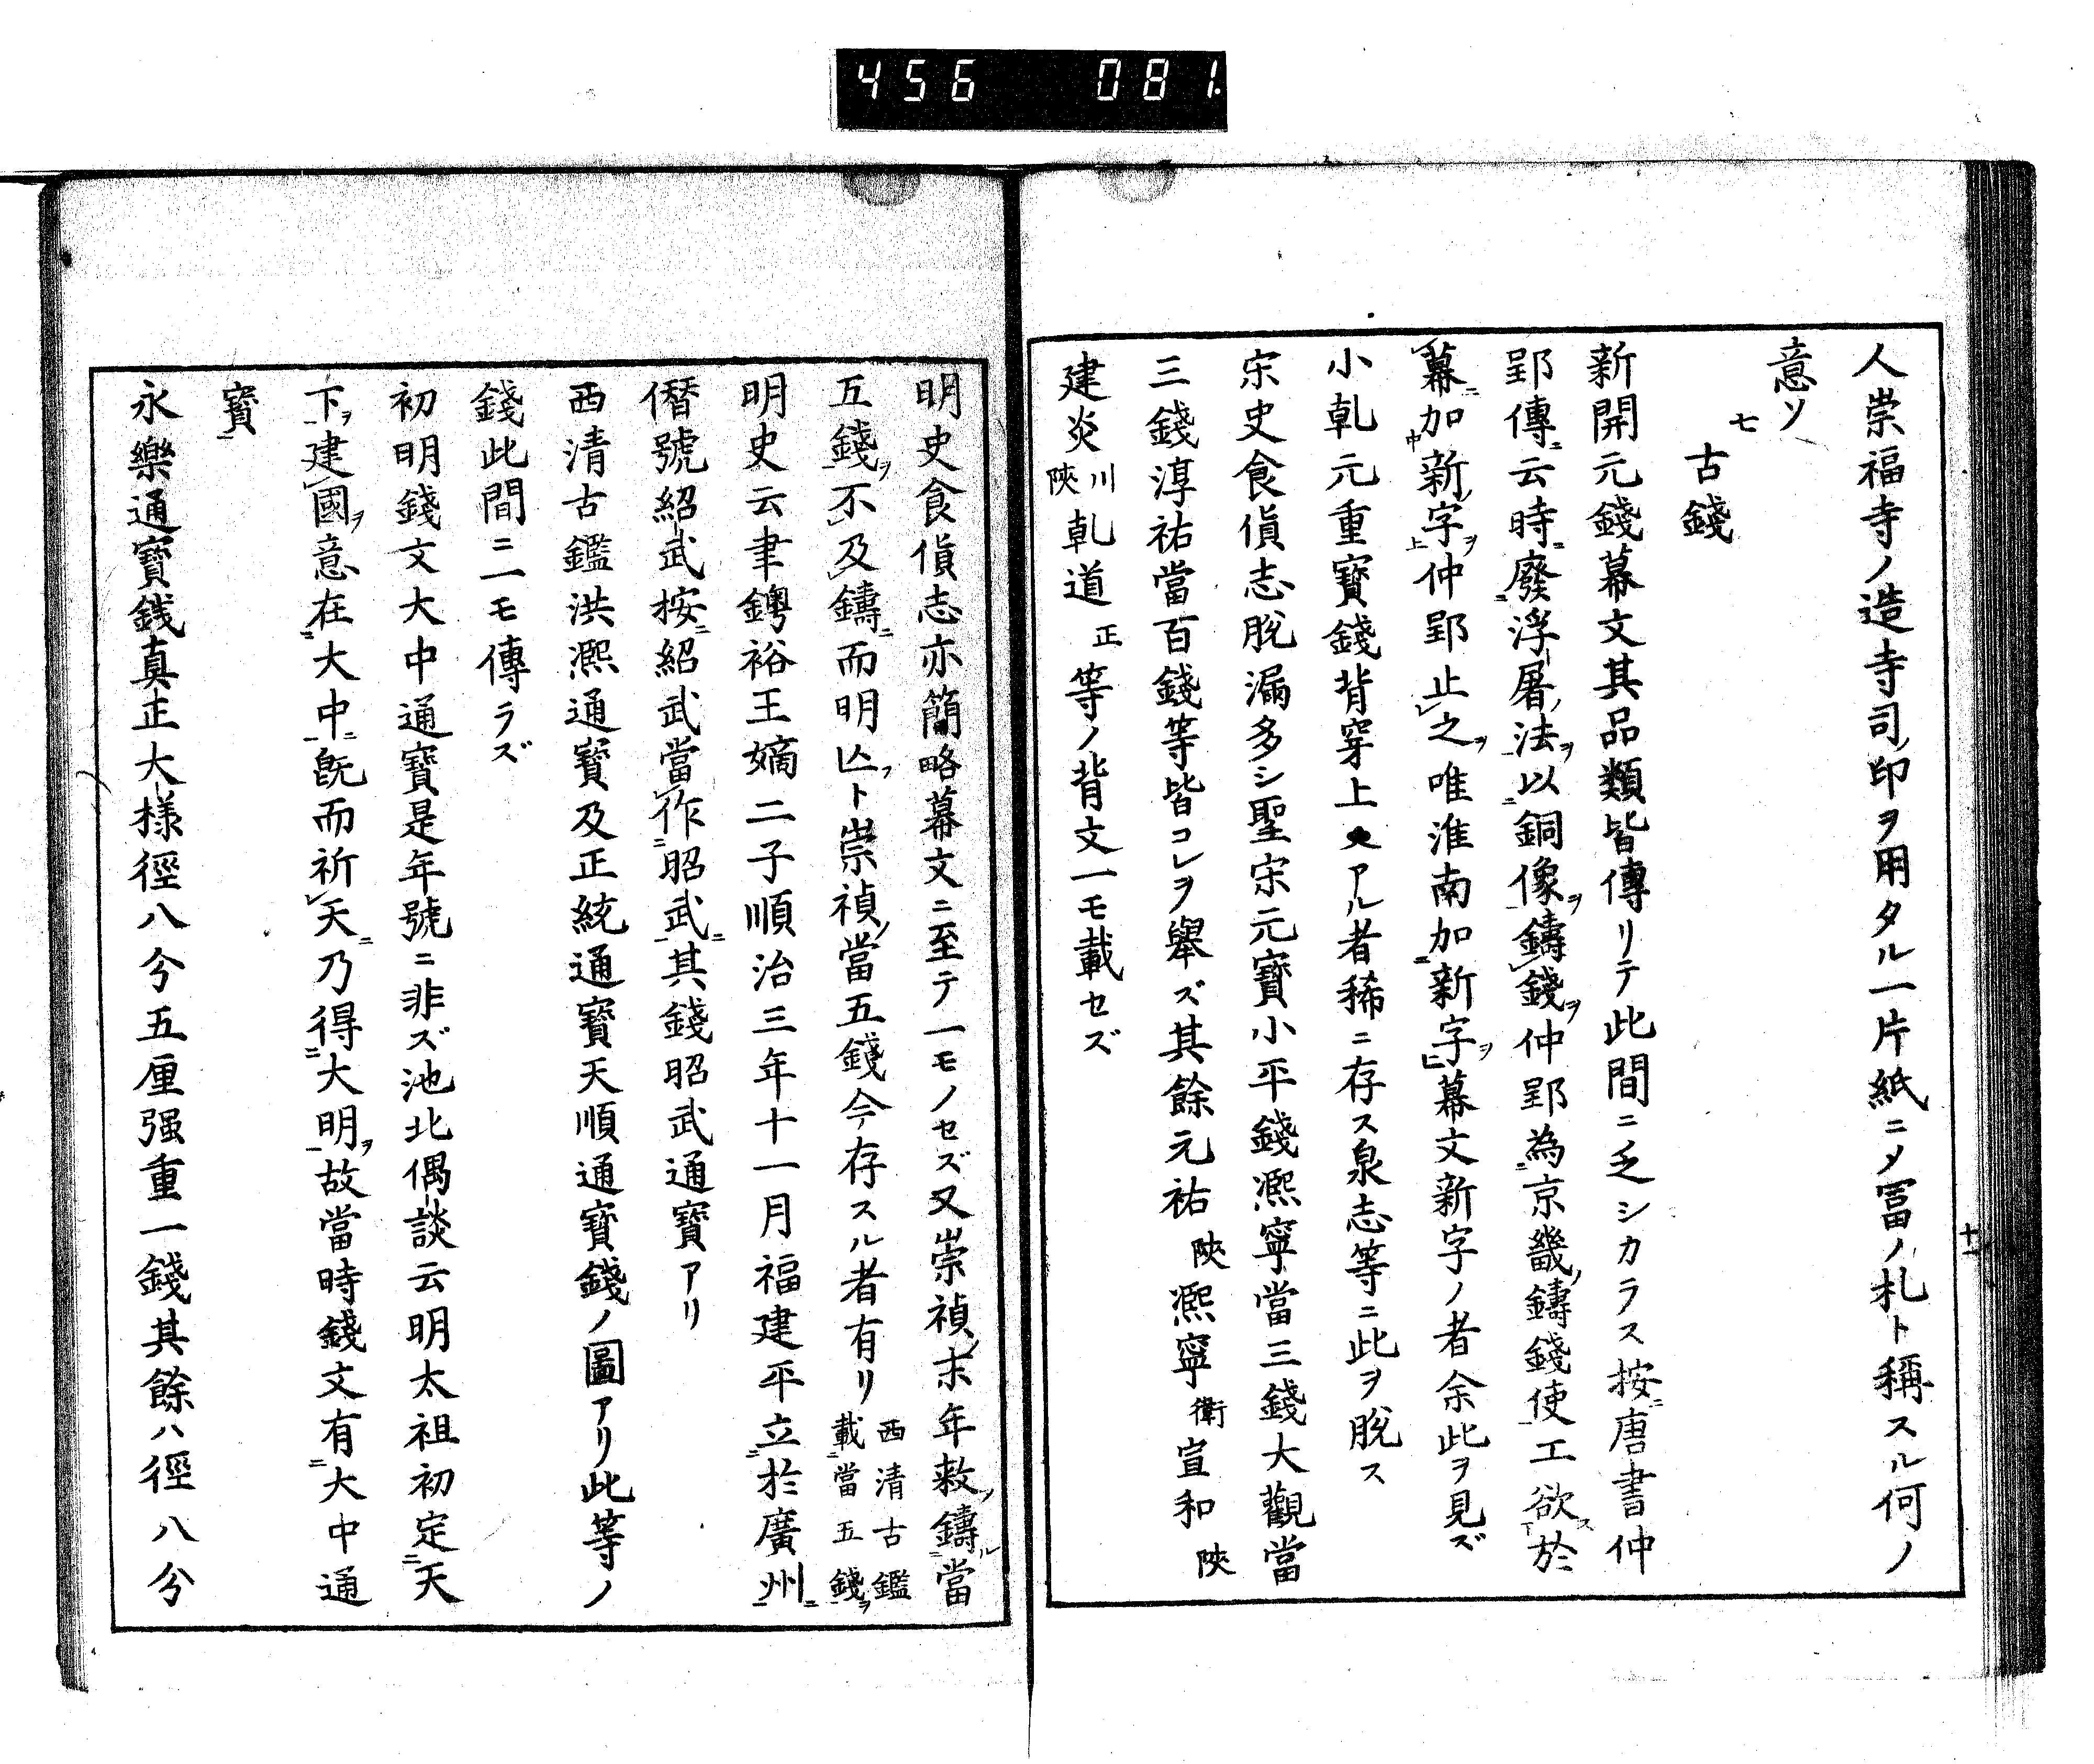 456 081.
人崇福寺ノ造寺司ノ印ヲ用タル一片紙ニノ冨ノ札ト稱スル何ノ
意ソ
七
古錢
新開元錢幕文其品類皆傳リテ此間ニ乏シカラス按唐書仲
郢傳云時廢浮屠法以銅像鑄錢仲郢為京畿鑄錢使工欲於
幕加新字仲郢止之唯淮南加新字幕文新字ノ者余此ヲ見ズ
小乹元重寶錢背穿上アル者稀ニ存ス泉志等ニ此ヲ脱ス
宋史食貨志脱漏多シ聖宋元寶小平錢熈寧當三錢大觀當
三錢淳祐當百錢等皆コレヲ舉ズ其餘元祐陜熈寧衛宣和陜
建炎川陜乹道正等ノ背文一モ載セズ
十一
明史食貨志亦簡略幕文ニ至テ一モノセズ又崇禎ノ末年敕鑄當
五錢不及鑄而明亾ト崇禎ノ當五錢今存スル者有リ西清古鑑載當五錢
明史云聿鐭裕王嫡二子順治三年十一月福建平立於廣州
僭號紹武按紹武當作昭武其錢昭武通寶アリ
西清古鑑洪熈通寶及正統通寶天順通寶錢ノ圖アリ此等ノ
錢此間ニ一モ傳ラズ
初明錢文大中通寶是年號ニ非ズ池北偶談云明太祖初定天
下建國意在大中既而祈天乃得大明故當時錢文有大中通
寳
永樂通寶銭真正大様徑八分五厘强重一錢其餘ハ徑八分